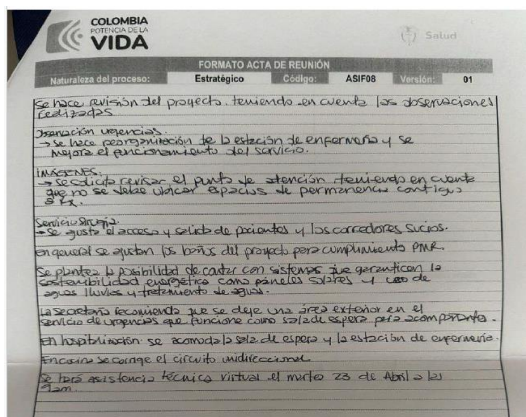 COLOMBIA
POTENCIA DE LA
VIDA
Salud
FORMATO ACTA DE REUNIÓN
Naturaleza del proceso: Estratégico Código: ASIF08 Versión: 01
Se hace revisión del proyecto, teniendo en cuenta las observaciones
realizadas
Observación urgencias.
→ se hace reorganización de la estación de enfermería y se
mejora el funcionamiento del servicio.
IMÁGENES.
→ se solicita revisar el punto de atención teniendo en cuenta
que no se debe ubicar espacios de permanencia contiguo
a RX.
Servicio Cirugía.
→ Se ajusta el acceso y salida de pacientes y los corredores sucios.
en general se ajustan los baños del proyecto para cumplimiento PMR.
Se plantea la posibilidad de contar con sistemas que garanticen la
sostenibilidad energética como paneles solares y uso de
aguas lluvias y tratamiento de aguas.
La secretaria recomienda que se deje una área exterior en el
servicio de urgencias que funcione como sala de espera para acompañantes.
En hospitalización se acomoda la sala de espera y la estación de enfermería.
En cocina se corrige el circuito unidireccional
Se hará asistencia técnica virtual el martes 23 de Abril a las
9am.